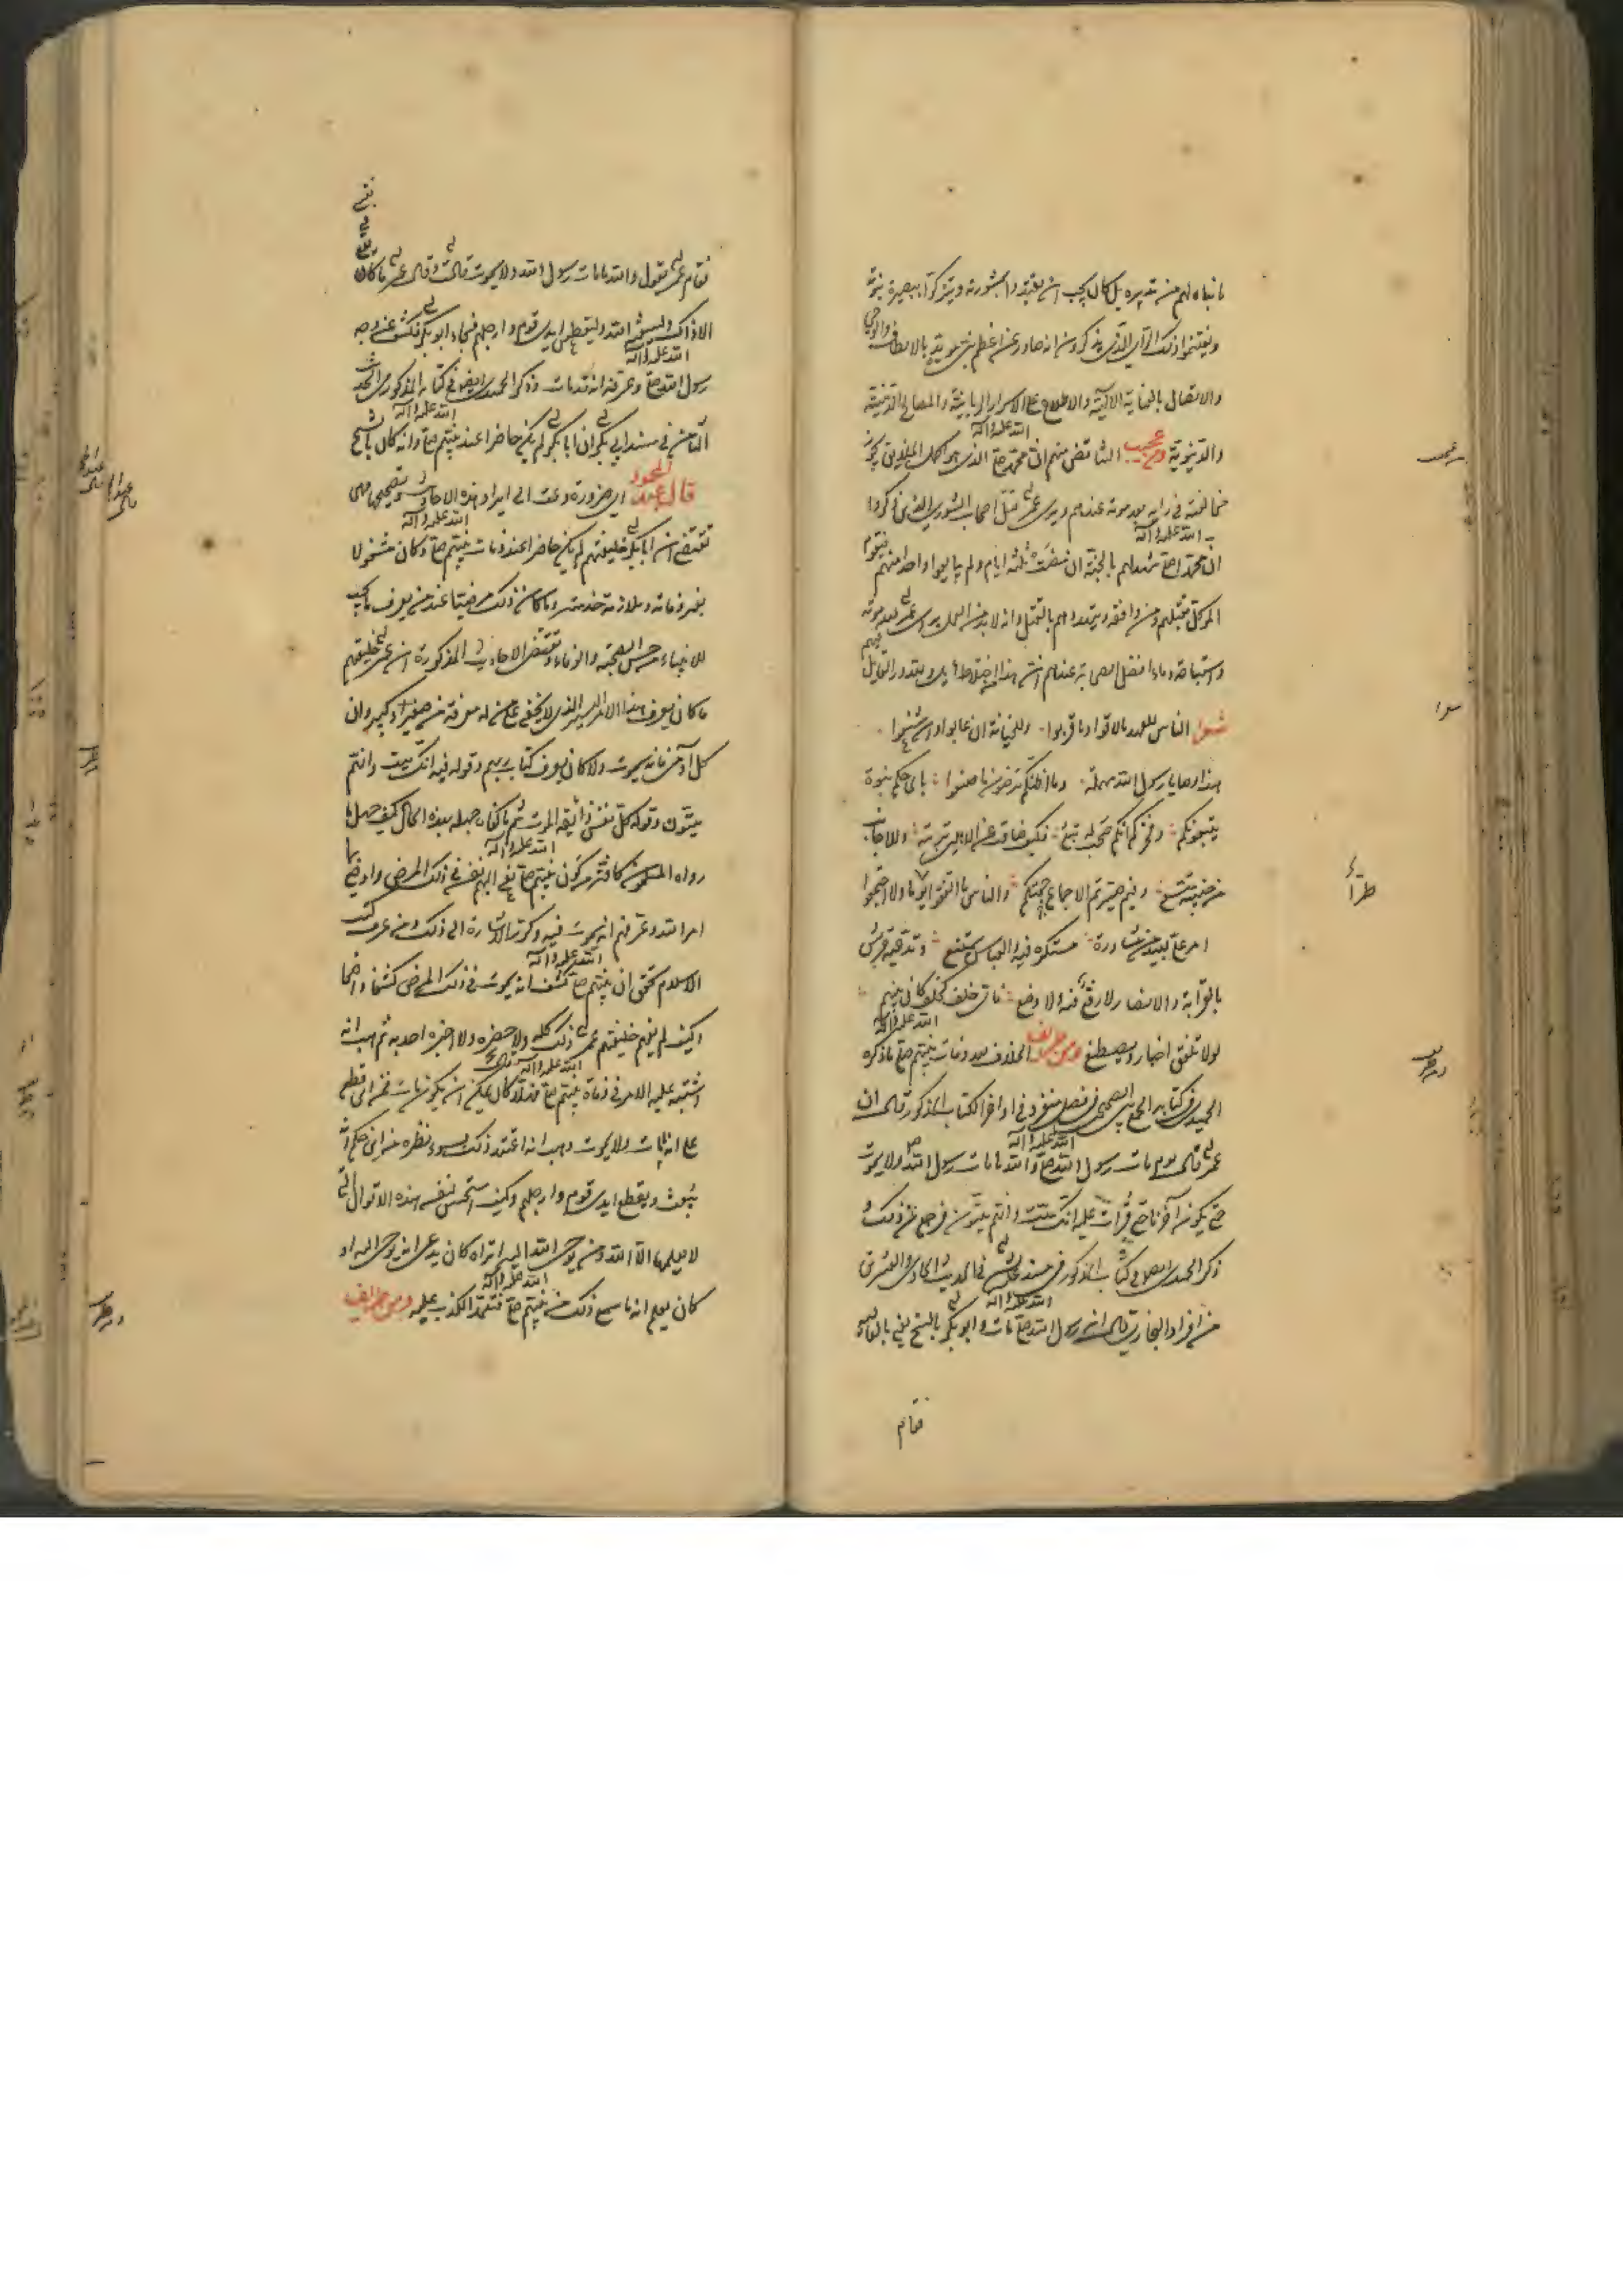 ما بناه لهم من تدبيره بل كان يجب ان يقتدوا بمشورته ويتبركوا ببصيرة نبوته
ويغتنموا ذلك الرأي الذي يذكرون انه صادر عن اعظم نبي مؤيد بالالطاف والوحي
والاتصال بالعناية الالهية والاطلاع على الاسرار الربانية والمصالح الدينية
والدنيوية ومن عجيب التناقض منهم ان محمدا صلى الله عليه وآله الذي هو اكمل الخلايق يجوز
مخالفته في رايه بعد موته عندهم ويرى عمر قتل اصحاب الشورى الذين ذكروا
ان محمدا صلى الله عليه وآله شهد لهم بالجنة ان مضت ثلثة ايام ولم يبايعوا واحدا منهم فيقوم
الموكل بقتلهم ومن وافقه ويتهددهم بالقتل وانه لا بد من العمل براى عمر بعد موته
واستباحة دماء افضل الصحابة عندهم ان هذا اختلاط هايل ولله در القايل فيهم
شعرا الناس للعهد ما لاقوا وما قربوا وللخيانة ان غابوا وان شسعوا
هذا وصايا رسول الله مهملة وما اظنكم ترضون ما صنعوا باى حكم بنوه
يتبعونكم وفخركم انكم صحب له تبع وكيف ضاقت عن الاهلين تربته وللاجانب
من جنبيه متسع وفيم صيرتم الاجماع حجتكم والناس ما اتفقوا يوما ولا اجتمعوا
امر علي بعيد من مشاورة مستكره فيه والعباس ممتنع وتدعيه قريش
بالقرابة والانصار لا رفع فيه ولا وضع فاى خلف كخلف كان بينهم
لولا تلفق اخبار ويصطنع ومن طريف الخلاف بعد وفات نبيهم صلى الله عليه وآله ما ذكره
الحميدي في كتابه الجمع بين الصحيحين في فصل منفرد في اواخر الكتاب المذكور قال ان
عمر قال يوم مات رسول الله صلى الله عليه وآله والله ما مات رسول الله ص ولا يموت
حتى يكون آخرنا حتى قرأت عليه انك ميت وانهم ميتون فرجع عن ذلك و
ذكر الحميدي ايضا في كتابه المذكور في مسند عايشة في الحديث الحادي والعشرين
من افراد البخاري قال ان رسول الله صلى الله عليه وآله مات وابو بكر بالسنح يعني بالعالية
فقام
فقام عمر يقول والله ما مات رسول الله ولا يموت قالت وقال عمر ما كان يقع في نفسي
الا ذاك وليبعثنه الله وليقطعن ايدي قوم وارجلهم فجاء ابو بكر فكشف عن وجه
رسول الله صلى الله عليه وآله وعرفه انه قد مات وذكر الحميدي ايضا في كتابه المذكور في الحديث
الثامن في مسند ابي بكر ان ابا بكر لم يكن حاضرا عند نبيهم صلى الله عليه وآله وانه كان بالسنح
قال عبد المحمود اى ضرورة دعت الى ايراد هذه الاحاديث وتصحيحها وهي
تقتضي ان ابا بكر خليفتهم لم يكن حاضرا عند وفات نبيهم صلى الله عليه وآله وكان مشغولا
بغير وفاته وملازمة خدمته وما كان ذلك مرضيا عند من يعرف ما يجب
للانبياء من حسن الصحبة والوفاء وتقتضى الاحاديث المذكورة ان عمر خليفتهم
ما كان يعرف هذا الامر اليسير الذي لا يخفى على من له معرفة من صغير او كبير وان
كل آدمي فانه يموت ولا كان يعرف كتاب ربهم وقوله فيه انك ميت وانهم
ميتون وقوله كل نفس ذائقة الموت ثم ما كفاه جهله بهذه الحال كيف جهل ما
رواه المسلمون كافة من كون نبيهم صلى الله عليه وآله نعى اليهم نفسه في ذلك المرض واوضح بها
امر الله وعرفهم انه يموت فيه وكرر الاشارة الى ذلك ومن عرف كتب
الاسلام تحقق ان نبيهم صلى الله عليه وآله كشف انه يموت في ذلك المرض كشفا واضحا
وكيف لم يفهم خليفتهم عمر ذلك كله ولا حضره ولا اخبره احد به ثم هب انه
اشتبه عليه الامر في وفاة نبيهم صلى الله عليه وآله فهلا كان يمكن ان يكون مات فمن اين قطع
على انه ما مات ولا يموت وهب انه اعتقد ذلك بسوء نظره من اين حكم انه
يبعث ويقطع ايدي قوم وارجلهم وكيف استحسن لنفسه هذه الاقوال التي
لا يعلمها الا الله ومن يوحي الله اليه اتراه كان يدعى انه يوحى اليه او
كان يعلم انه ما سمع ذلك من نبيهم صلى الله عليه وآله فتعمد الكذب عليه ومن طريف